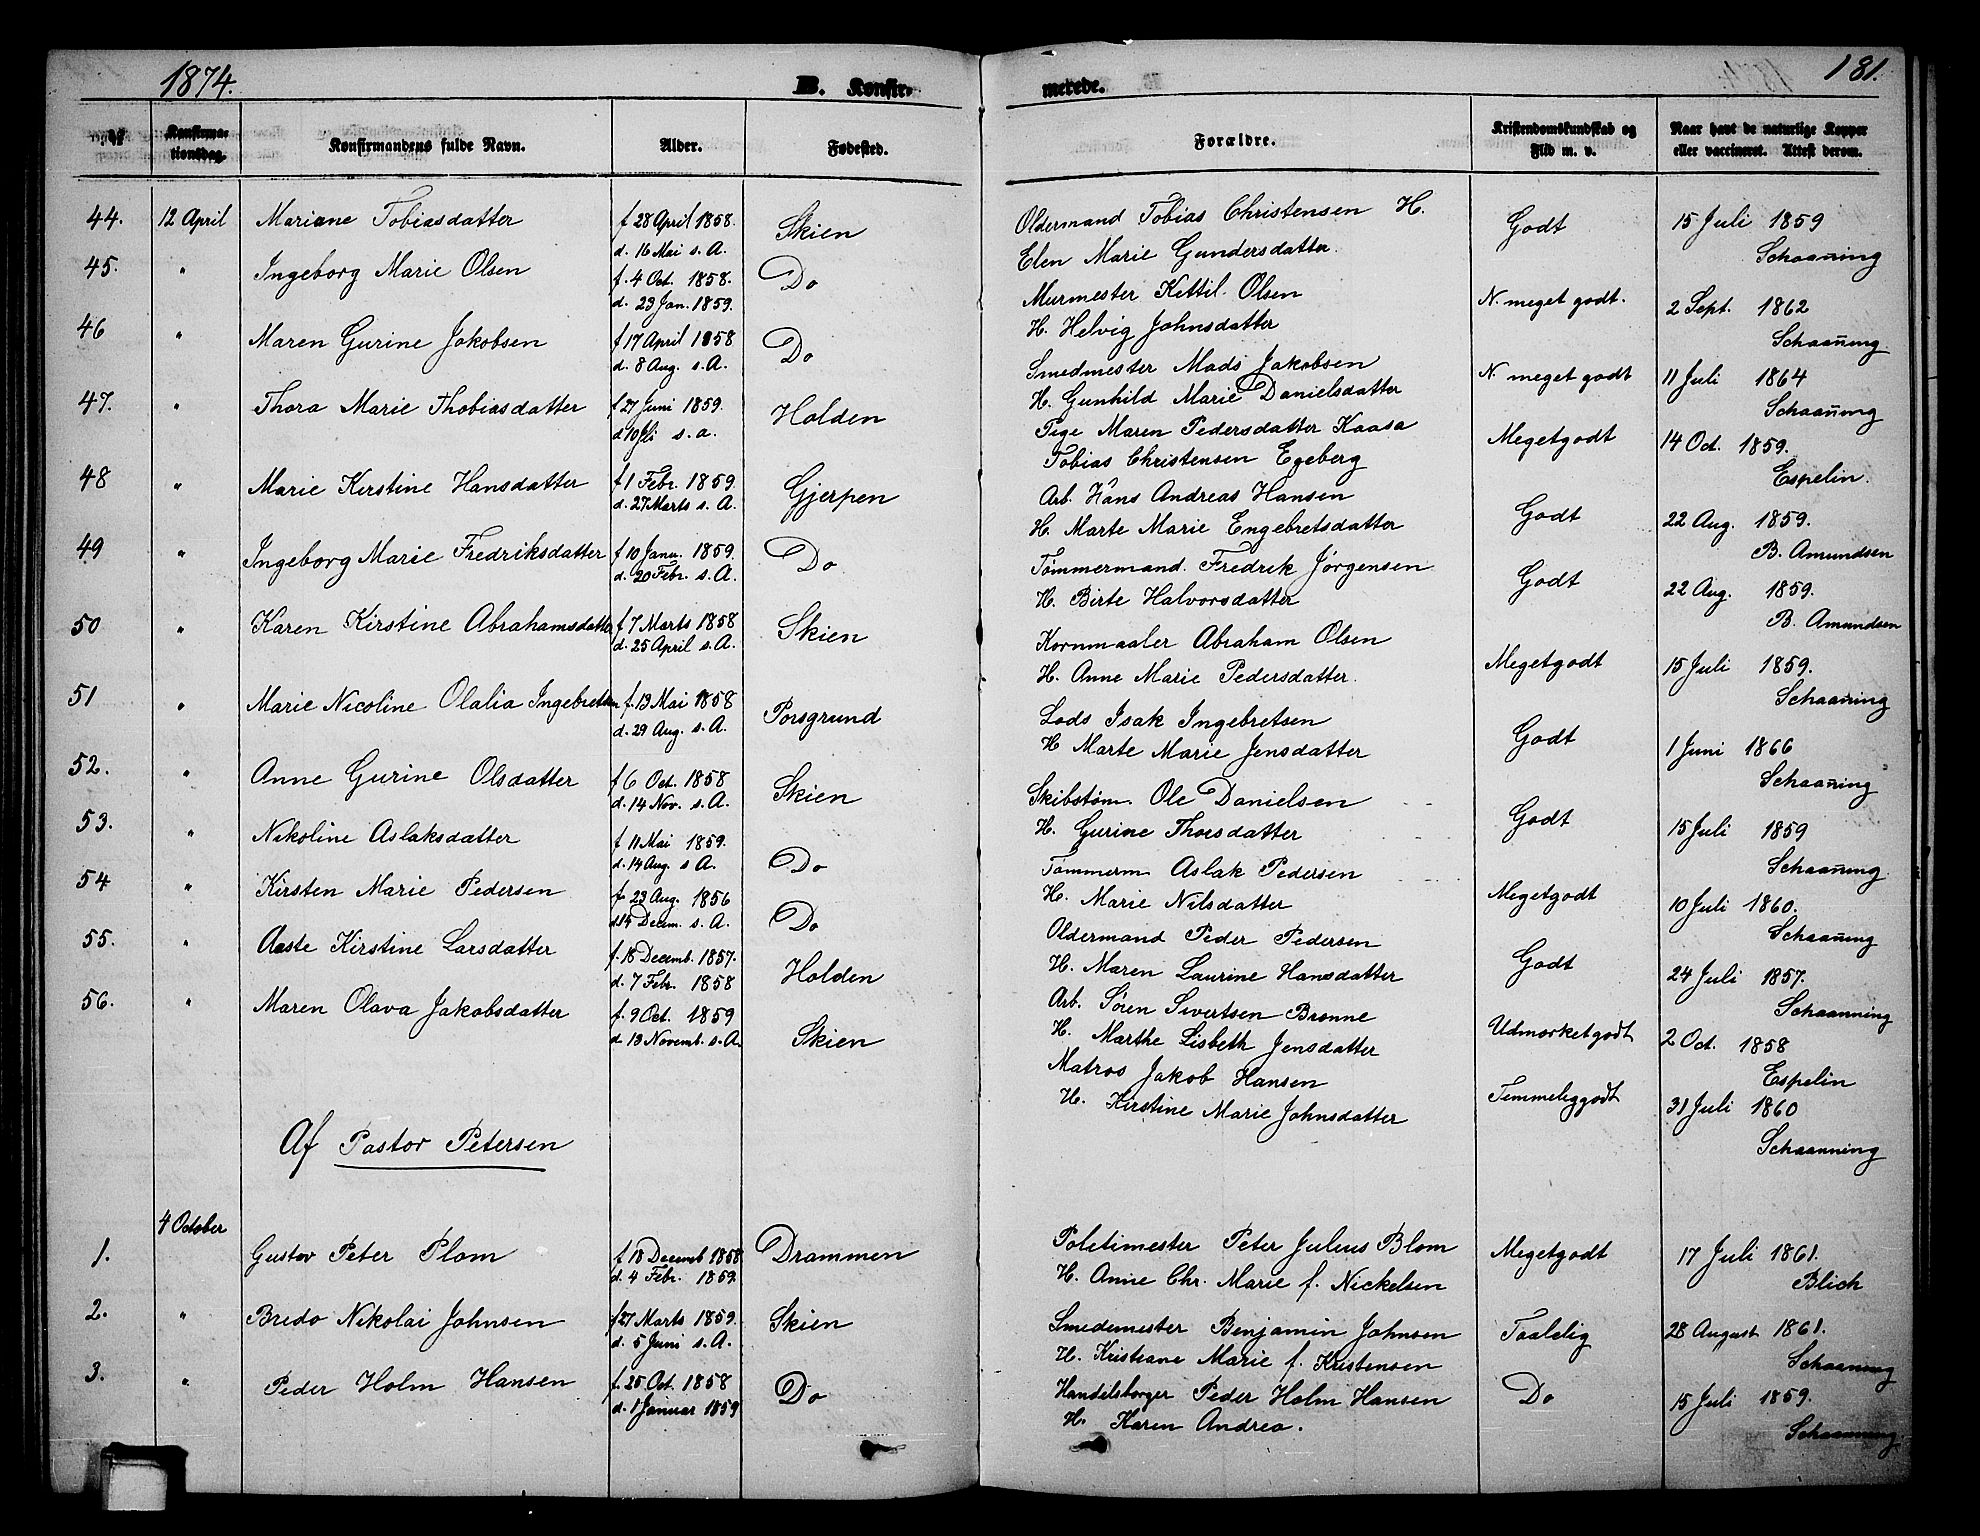 1874.
B. Konfir-
merede.
181.
№
Konfirma-
tionsdag.
Konfirmandens fulde Navn.
Alder.
Fødested.
Forældre.
Kristendomskundskab og
Flid m. v.
Naar havt de naturlige Kopper
eller vaccineret. Attest derom.
44. 12 April Mariane Tobiasdatter f 28 April 1858. Skien Oldermand Tobias Christensen H. Godt 15 Juli 1859
d. 16 Mai s. A. Elen Marie Gundersdatter. Schaaning
45. " Ingeborg Marie Olsen f. 4 Oct. 1858. Do Murmester Kettil Olsen N. meget godt. 2 Sept. 1862
d. 23 Jan. 1859. H. Helvig Johnsdatter Schaaning
46 " Maren Gurine Jakobsen f 17 April 1858 Do Smedmester Mads Jakobsen N. meget godt 11 Juli 1864
d. 8 Aug. s. A. H. Gunhild Marie Danielsdatter Schaaning
47. " Thora Marie Thobiasdatter f 27 Juni 1859. Holden Pige Maren Pedersdatter Kaasa Megetgodt 14 Oct. 1859.
d 10 Jli s. a. Tobias Christensen Egeberg Espelin.
48 " Marie Kirstine Hansdatter f 1 Febr. 1859. Gjerpen Arb. Hans Andreas Hansen Godt 22 Aug. 1859.
d. 27 Marts s. A. H. Marte Marie Engebretsdatter B. Amundsen
49 " Ingeborg Marie Fredriksdatter f 10 Janu. 1859. Do Tømmermand. Fredrik Jørgensen Godt 22 Aug. 1859.
d. 20 Febr. s. A. H. Birte Halvorsdatter B. Amundsen
50 " Karen Kirstine Abrahamsdatter f 7 Marts 1858 Skien Kornmaaler Abraham Olsen Megetgodt 15 Juli 1859.
d. 25 April s. A. H. Anne Marie Pedersdatter. Schaaning
51 " Marie Nicoline Olalia Ingebretsen f. 13 Mai 1858 Porsgrund Lods Isak Ingebretsen Godt 1 Juni 1866
d. 29 Aug. s. A. H Marte Marie Jensdatter Schaaning
52. " Anne Gurine Olsdatter f 6 Oct. 1858 Skien Skibstøm. Ole Danielsen Godt 15 Juli 1859
d. 14 Nov. s. A. H. Gurine Thorsdatter Schaaning
53. " Nikoline Aslaksdatter f 11 Mai 1859. Do Tømmerm Aslak Pedersen Megetgodt 10 Juli 1860.
d. 14 Aug. s A. H. Marie Nilsdatter Schaaning
54 " Kirsten Marie Pedersen f 23 Aug. 1856 Do Oldermand Peder Pedersen Godt 24 Juli 1857.
d 14 Decem. s. A. H. Maren Laurine Hansdatter Schaanning
55. " Aaste Kirstine Larsdatter f. 18 Decemb. 1857. Holden Arb. Sören Sivertsen Brønne Udmærketgodt 2 Oct. 1858
d. 7 Febr. 1858 H. Marthe Lisbeth Jensdatter Espelin
56. " Maren Olava Jakobsdatter f. 9 Oct. 1859 Skien Matros Jakob Hansen Temmeliggodt 31 Juli 1860
d 13 Novemb. s. A. H. Kirstine Marie Johnsdatter Schaanning
Af Pastor Petersen
4 October
1. Gustav Peter Plom f 18 Decemb 1858 Drammen Politimester Peter Julius Blom Megetgodt 17 Juli 1861.
d. 4 Febr. 1859. H. Anne Chr. Marie f. Nickelsen Blich
2. " Bredo Nikolai Johnsen f 27 Marts 1859. Skien Smedemester Benjamin Johnsen Taalelig 28 August 1861.
d. 5 Juni s. A. H. Kristiane Marie f. Kristensen Schaaning
3. " Peder Holm Hansen f. 25 Oct. 1858 Do Handelsborger Peder Holm Hansen Do 15 Juli 1859.
d. 1 Januar 1859 H. Karen Andrea. Schaanning.